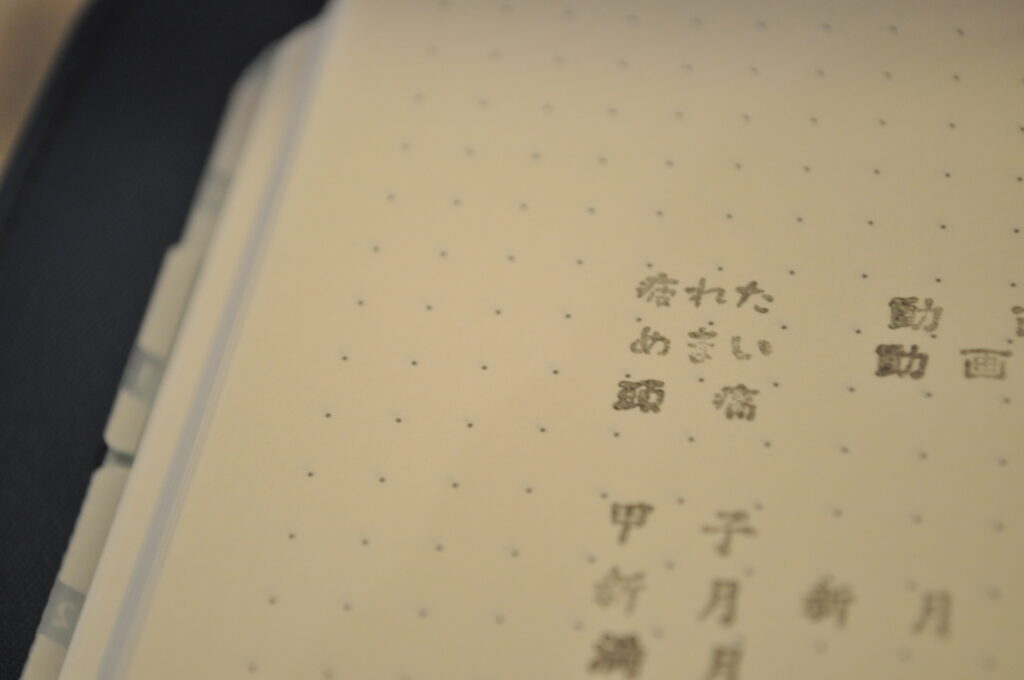 疲れた
めまい
頭 痛
動
動 画
甲 子
新 月 新 月
満 月
2